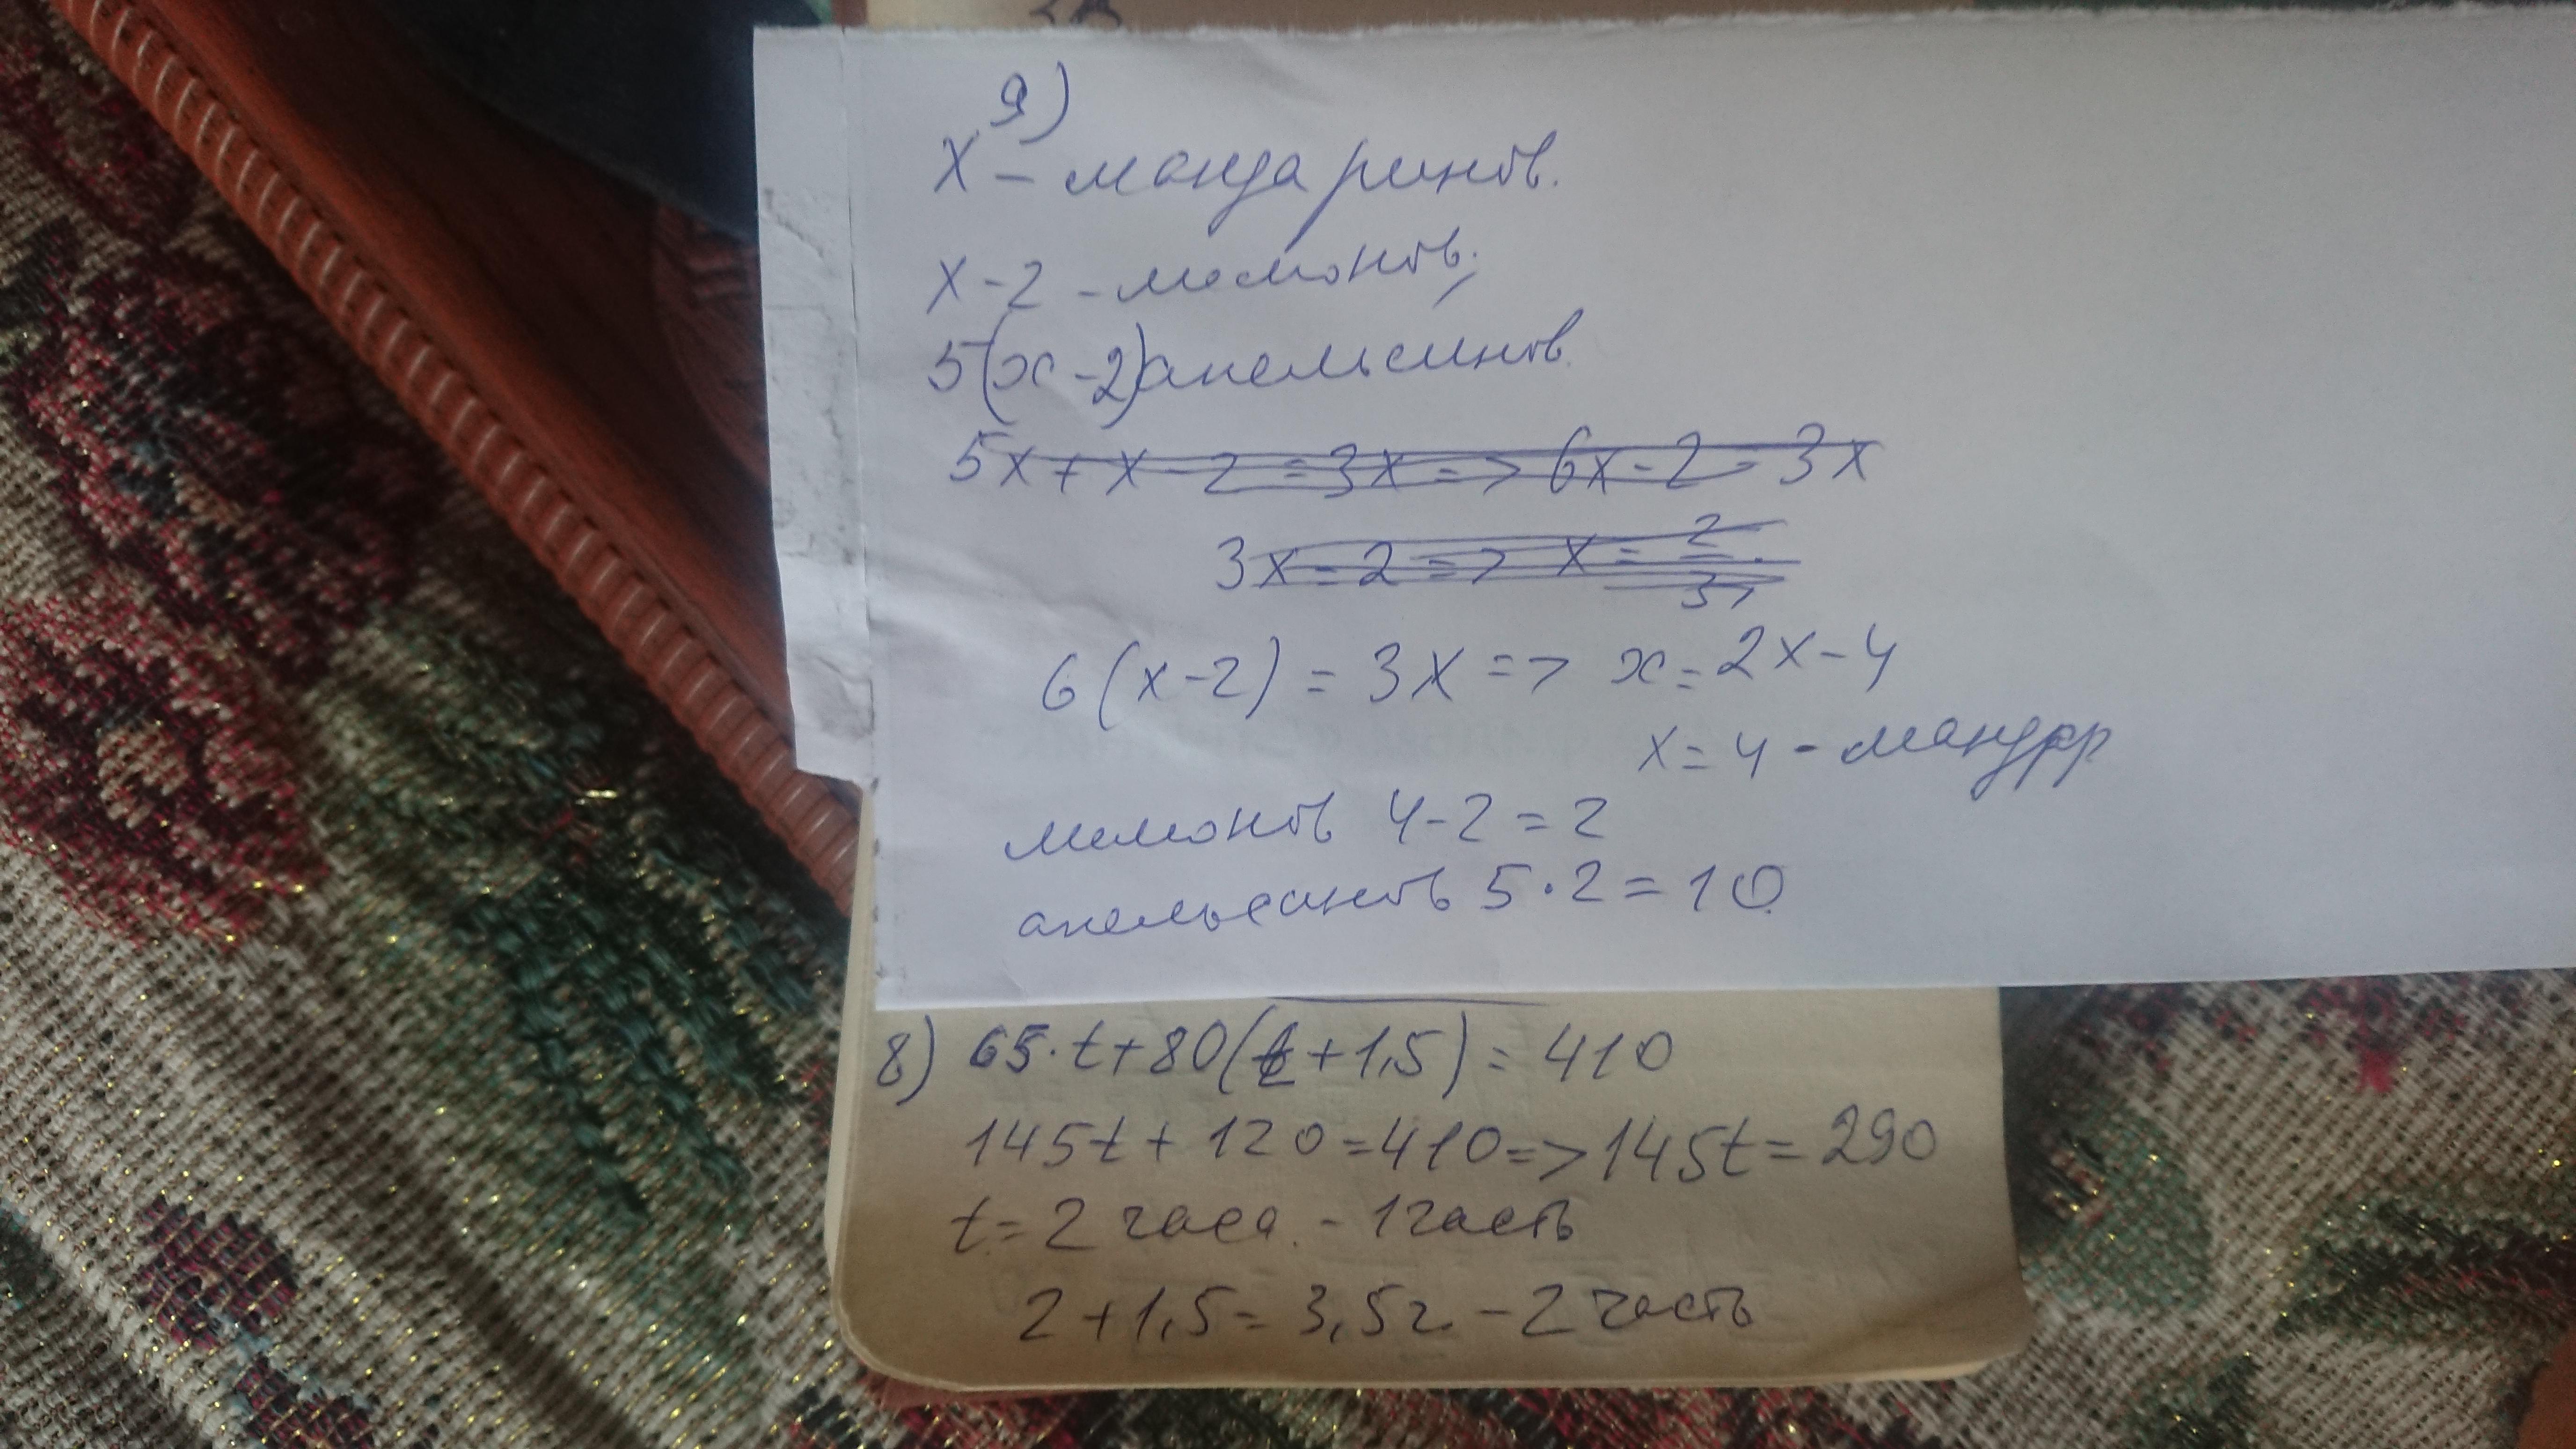 9)
x – мандаринов.
x - 2 - лимонов.
5(x - 2) апельсинов
5x + x - 2 = 3x => 6x - 2 = 3x
3x = 2 => x = 2/3
6(x-2) = 3x => x = 2x - 4
x = 4 - мандар
лимонов 4 - 2 = 2
апельсинов 5 · 2 = 10
8) 65·t + 80(t + 1,5) = 410
145t + 120 = 410 => 145t = 290
t = 2 часа. - 1 часть
2 + 1,5 = 3,5 ч - 2 часть